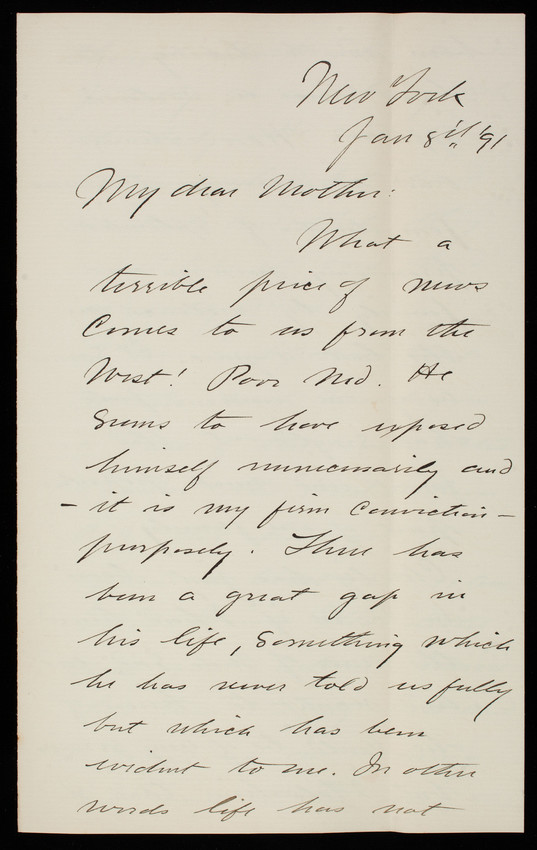 New York
Jan 8th '91
My dear Mother:
What a
terrible piece of news
Comes to us from the
West! Poor Ned. He
seems to have exposed
himself unnecessarily and
- it is my firm conviction -
purposely. There has
been a great gap in
his life, something which
he has never told us fully
but which has been
evident to me. In other
words life has not